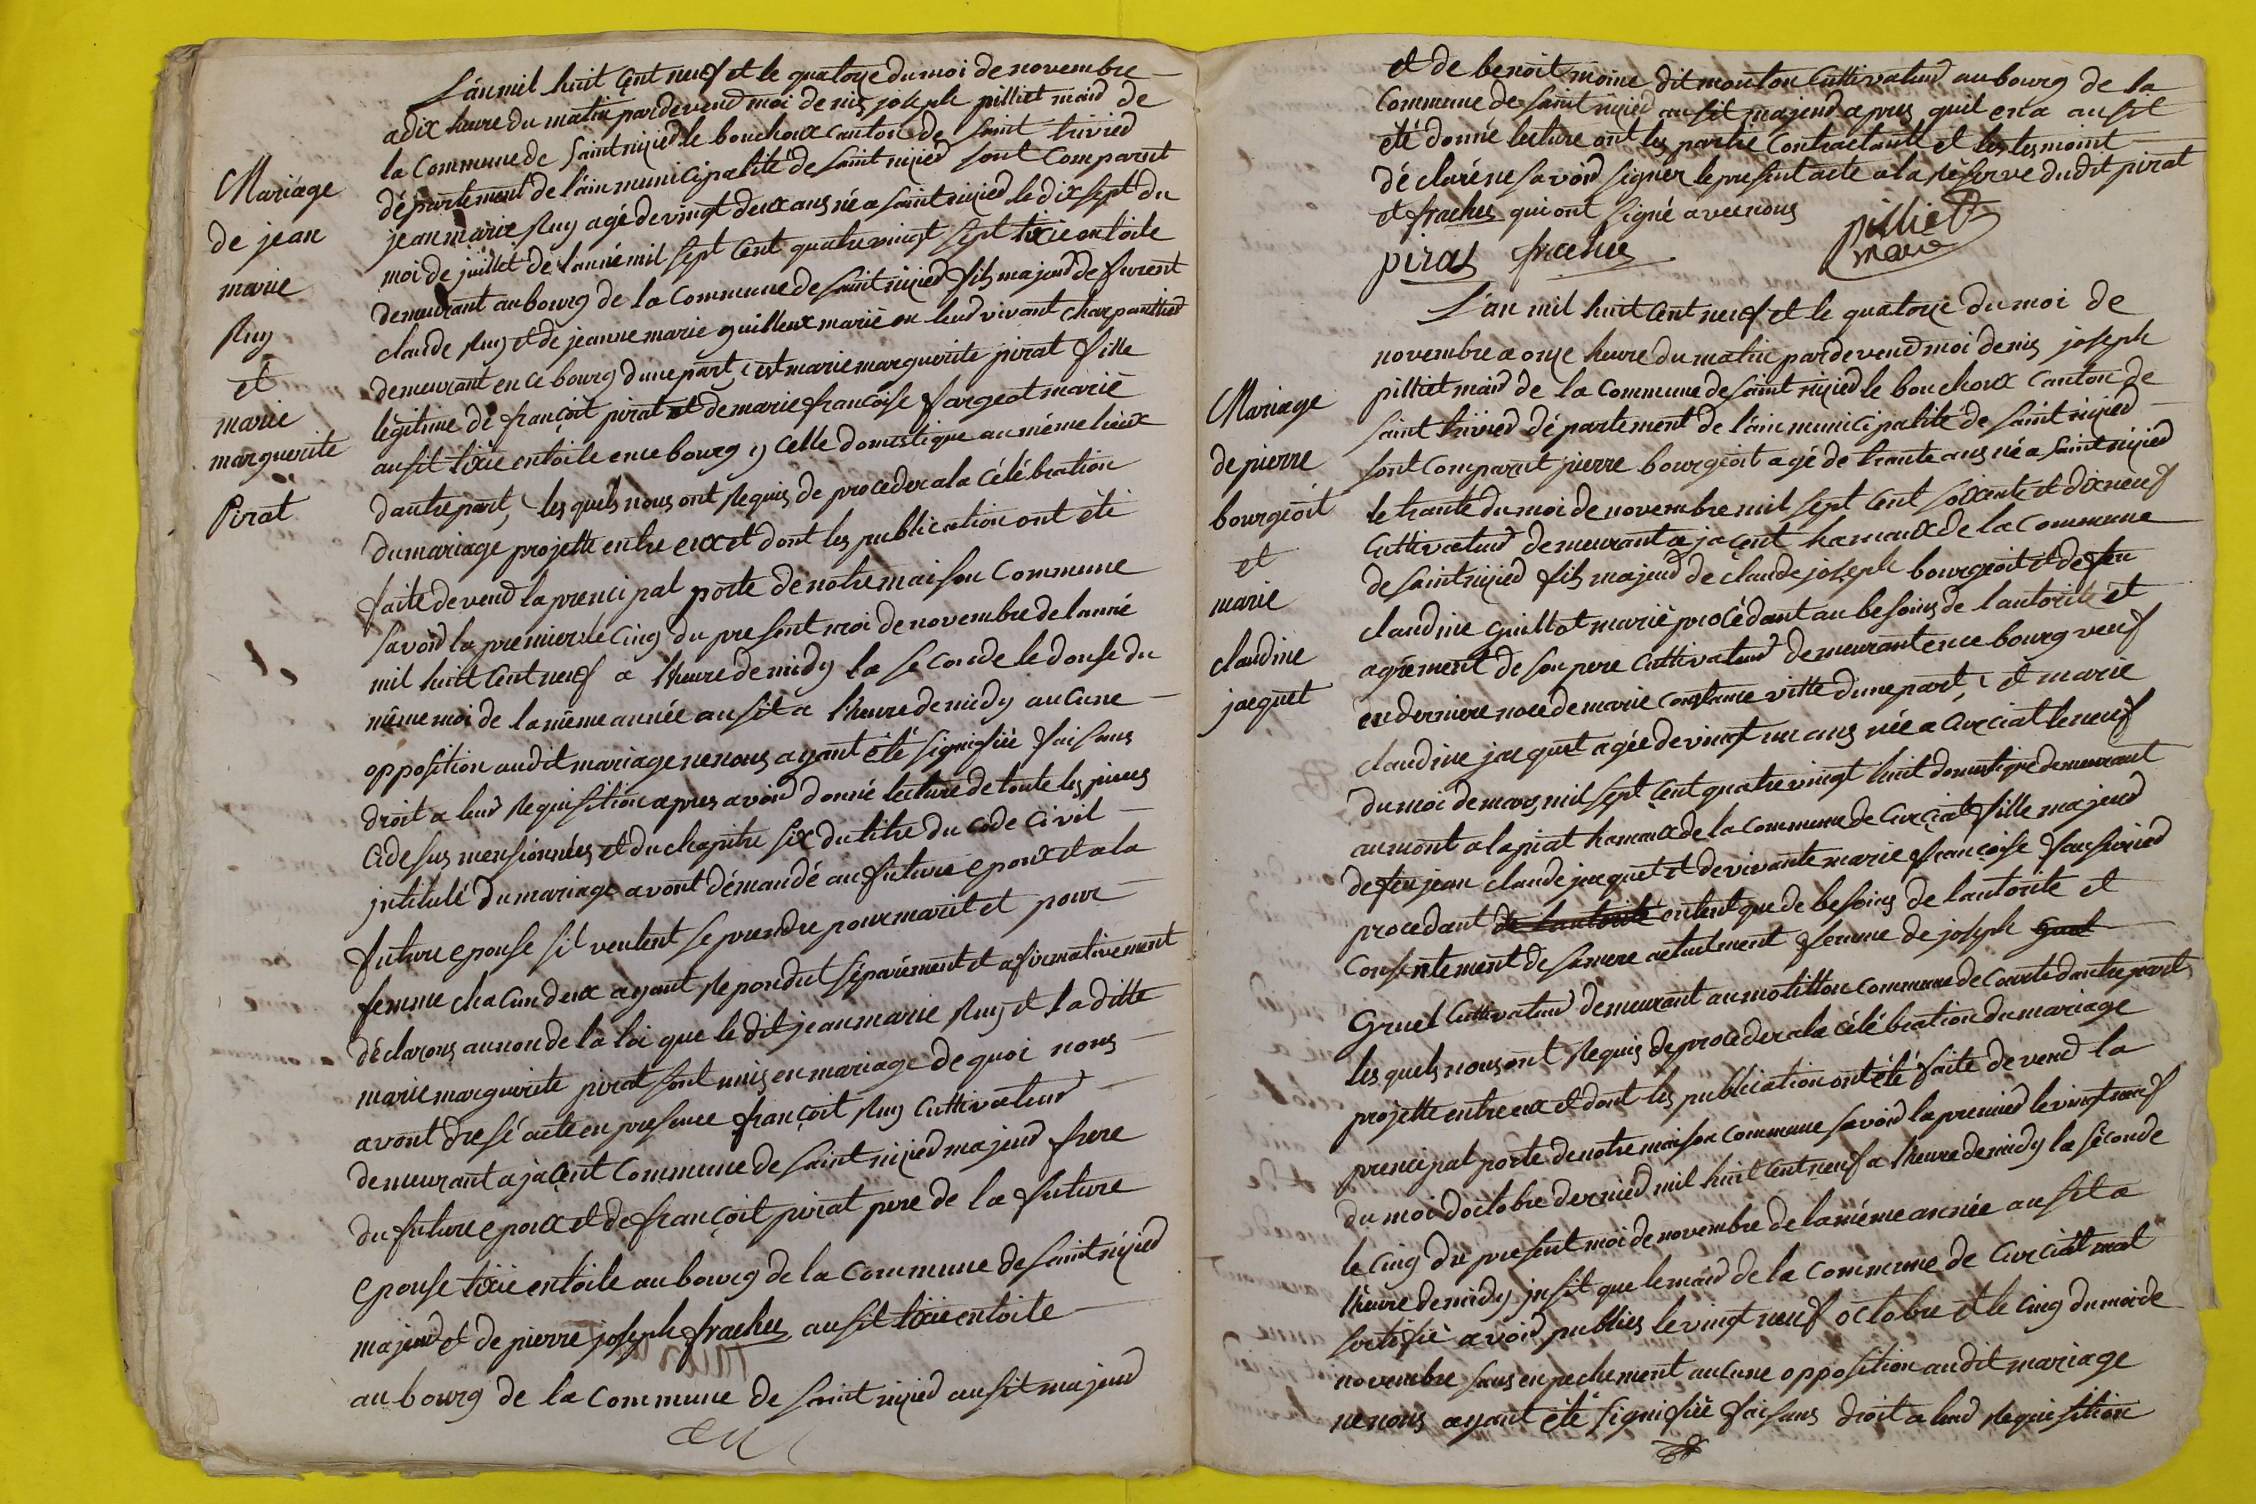 Mariage
de jean
marie
Ruy
et
marie
marguerite
Pirat
L'an mil huit cent neuf et le quatorze du moi de novembre
a dix heure du matin pardevend moi denis joseph pilliet maid de
la Commune de Saint nizied le bouchoux canton de Saint trivied
département de l'ain municipalité de Saint nizied sont Comparut
jean marie Ruy agé de vingt deux ans né a Saint nizied le dix sept du
moi de juillet de l'année mil sept Cent quatre vingt sept tixie en toile
demeurant au bourg de la Commune de Saint nizied fils majeud de furent
claude Ruy et de jeanne marie guilleux marié en leud vivant charpantied
demeurant en ce bourg d'une part, et marie marguerite pirat fille
légitime de françoit pirat et de marie françoise fargeot marié
ausit tixie en toile en ce bourg, celle domestique au même lieux
d'autre part, les quels nous ont Requis de proceder a la Célébration
du mariage projette entre eux et dont les publication ont été
faite devend la prencipal porte de notre maison Commune
Savoid la premier le Cinq du present moi de novembre de l'anné
mil huit Cent neuf a l'heure de midy la seconde le douse du
même moi de la même année ausit a l'heure de midy aucune
opposition audit mariage ne nous ayant été signifiée faisans
droit a leud Requisition apres avoid donné lecture de toute les pieces
Cidesus mensionnées et du chapitre six du titre du code Civil
jntitulé du mariage avont démandé au future epoux et a la
future epouse sil veulent se prendre pour marit et pour
femme chacun deux ayant Repondut séparément et afirmativement
déclarons au non de la loi que le dit jean marie Ruy et la ditte
marie marguerite pirat sont unis en mariage de quoi nous
avont dresé acte en presence françoit Ruy Cultivateud
demeurant a jacent Commune de Saint nizied majeud frere
du future epoux et de françoit pirat pere de la future
epouse tixie en toile au bourg de la Commune de Saint nizied
majeud et de pierre joseph frachu ausit tixie en toile
au bourg de la Commune de Saint nizied ausit majeud
et de benoit moine dit mouton Cultivateud au bourg de la
Commune de Saint nizied ausit majeud apres quil en a ausit
été donné lecture ont les partie Contractante et les tesmoint
déclaré ne savoid signer le present acte a la réserve dudit pirat
et frachu qui ont signé avec nous
pirat frachu pilliet
maire
Mariage
de pierre
bourgeoit
et
marie
claudine
jacquet
L'an mil huit Cent neuf et le quatorze du moi de
novembre a onze heure du matin pardevend moi denis joseph
pilliet maid de la Commune de Saint nizied le bouchoux Canton de
Saint trivied département de l'ain municipalité de Saint nizied
sont Comparut pierre bourgeoit agé de trante ans né a Saint nizied
le trante du moi de novembre mil sept Cent soixente et dix neuf
Cultivateud demeurant a jacent hamaux de la Commune
de Saint nizied fils majeud de claude joseph bourgeoit et de feu
claudine guillot marié procédant au besoins de l'autorité et
agrément de son pere Cultivateud demeurant en ce bourg veuf
en derniere noce de marie constance vitte d'une part, et marie
claudine jacquet agée de vingt un ans née a Curciat le neuf
du moi de mars mil sept Cent quatre vingt huit domestique demeurant
au mont a la piat hamaux de la commune de Curciat fille majeud
de feu jean claude jacquet et de vivante marie françoise
procedant de l'autorité en tent que de besoins de l'autorité et
Consentement de sa mere actuelment femme de joseph
Gruel Cultivateud demeurant au motitton commune de Courte d'autre part,
les quels nous ont Requis de proceder a la célébration du mariage
projette entre eux et dont les publication ont été faite devend la
prencipal porte de notre maison Commune savoid la premied le vingt neuf
du moi d'octobre dernied mil huit Cent neuf a l'heure de midy la séconde
le Cinq du present moi de novembre de la même année ausit a
l'heure de midy jnsit que le maid de la Commune de Curciat mat
sertifié avoid publies le vingt neuf octobre et le Cinq du moi de
novembre sans enpechement aucune opposition audit mariage
ne nous ayant été signifiée faisans droit a leud Requisition